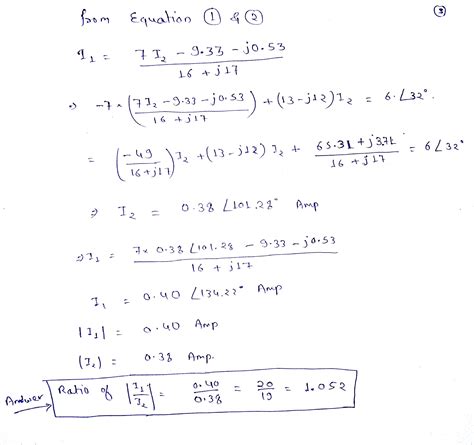 from Equation ① & ②
③
I₁ = (7 I₂ - 9.33 - j0.53) / (16 + j17)
⇒ -7 × ((7I₂ - 9.33 - j0.53) / (16 + j17)) + (13 - j12) I₂ = 6∠32°.
= (-49 / (16 + j17)) I₂ + (13 - j12) I₂ + (65.31 + j3.71) / (16 + j17) = 6∠32°
⇒ I₂ = 0.38 ∠101.28° Amp
⇒ I₁ = (7 × 0.38 ∠101.28 - 9.33 - j0.53) / (16 + j17)
I₁ = 0.40 ∠134.22° Amp
|I₁| = 0.40 Amp
|I₂| = 0.38 Amp.
Answer → Ratio of |I₁/I₂| = 0.40/0.38 = 20/19 = 1.052